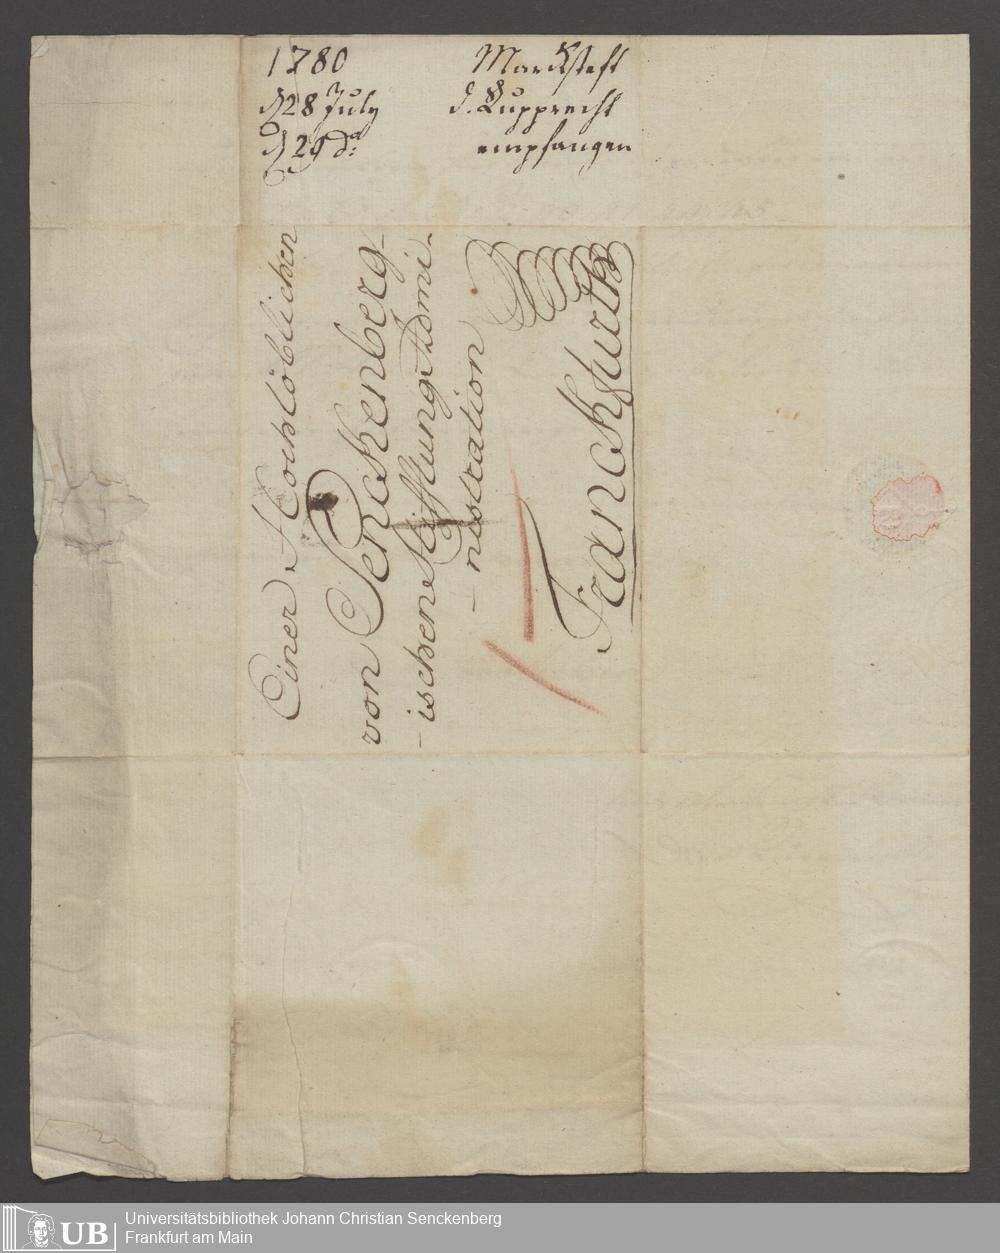 1780 Marksteft
d 28 July d. Rupprecht
d 29 do: empfangen
Einer Hochlöblichen
von Senckenberg-
-ischen Stifftung Admi-
-nistration
Franckfurth
UB
Universitätsbibliothek Johann Christian Senckenberg
Frankfurt am Main